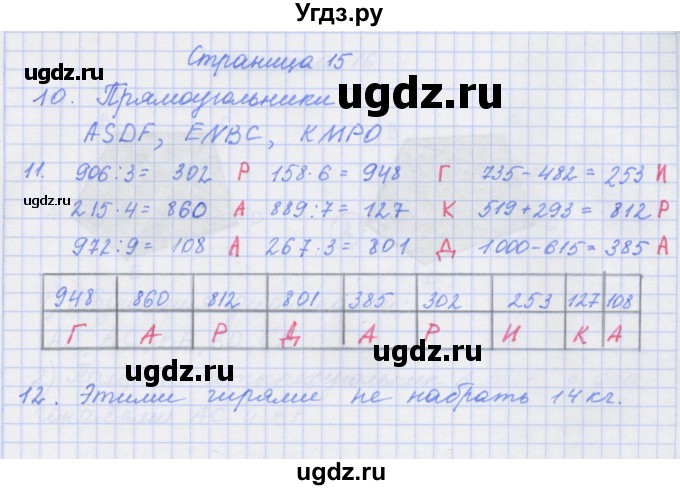 Угдз.ру
Страница 15
ugdz.ru
10. Прямоугольники
ugdz.ru
ASDF, ENBC, KMPO
ugdz.ru
11. 906:3= 302 Р 158·6= 948 Г 735-482= 253 И
215·4= 860 А 889:7= 127 К 519+293= 812 Р
972:9= 108 А 267·3= 801 Д 1000-615= 385 А
ugdz.ru
ugdz.ru
948 860 812 801 385 302 253 127 108
Г А Р Д А Р И К А
ugdz.ru
12. Этими гирями не набрать 14 кг.
ugdz.ru
ugdz.ru
ugdz.ru